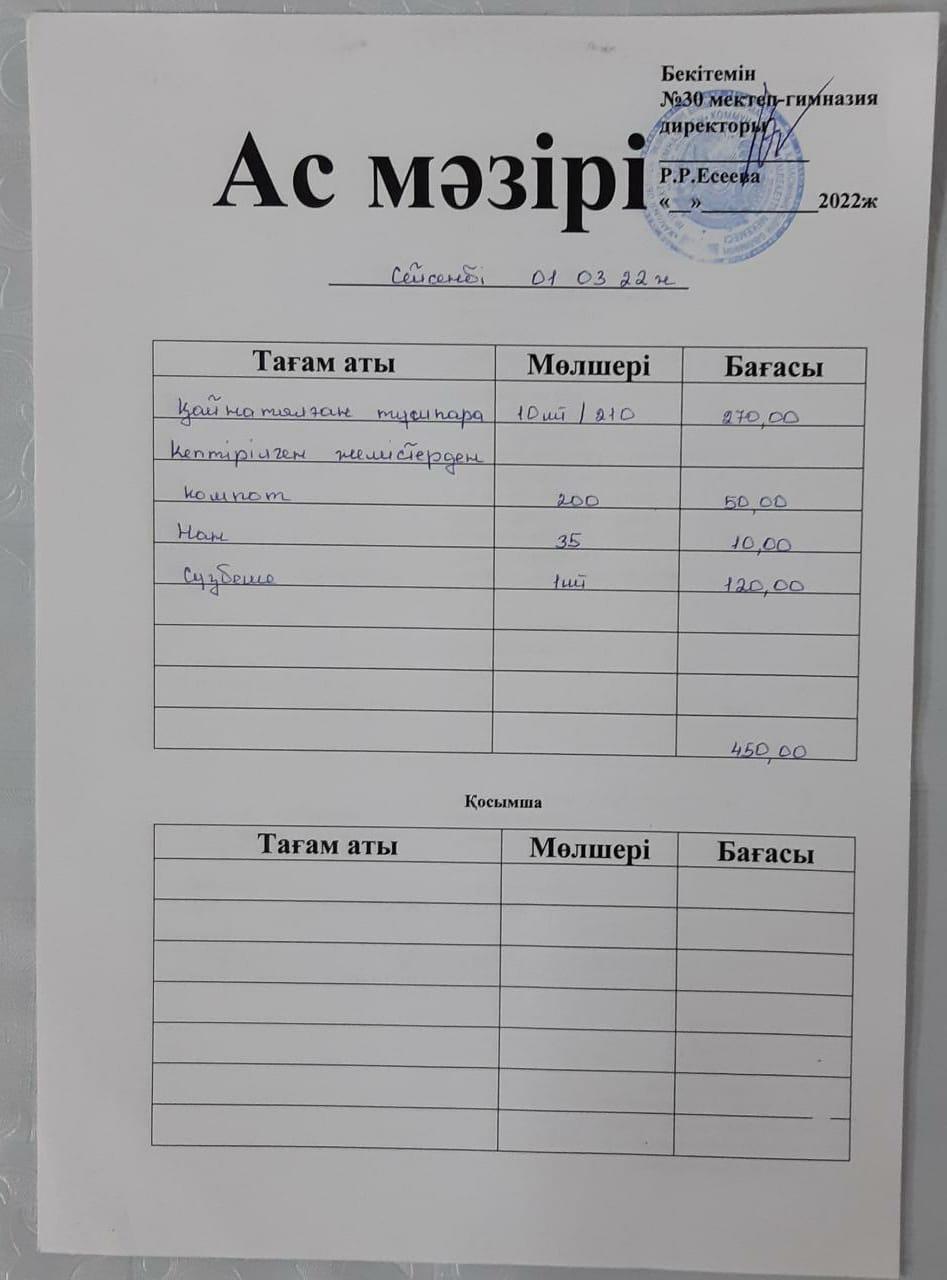 Бекітемін
№30 мектеп-гимназия
директоры
Р.Р.Есеева
«__»____________2022ж
Ас мәзірі
Сейсенбі 01 03 22ж
Тағам аты Мөлшері Бағасы
Қайнатылған тұшпара 10шт / 210 270,00
Кептірілген жемістерден
компот 200 50,00
Нан 35 10,00
Сузбеше 1шт 120,00
450,00
Қосымша
Тағам аты Мөлшері Бағасы